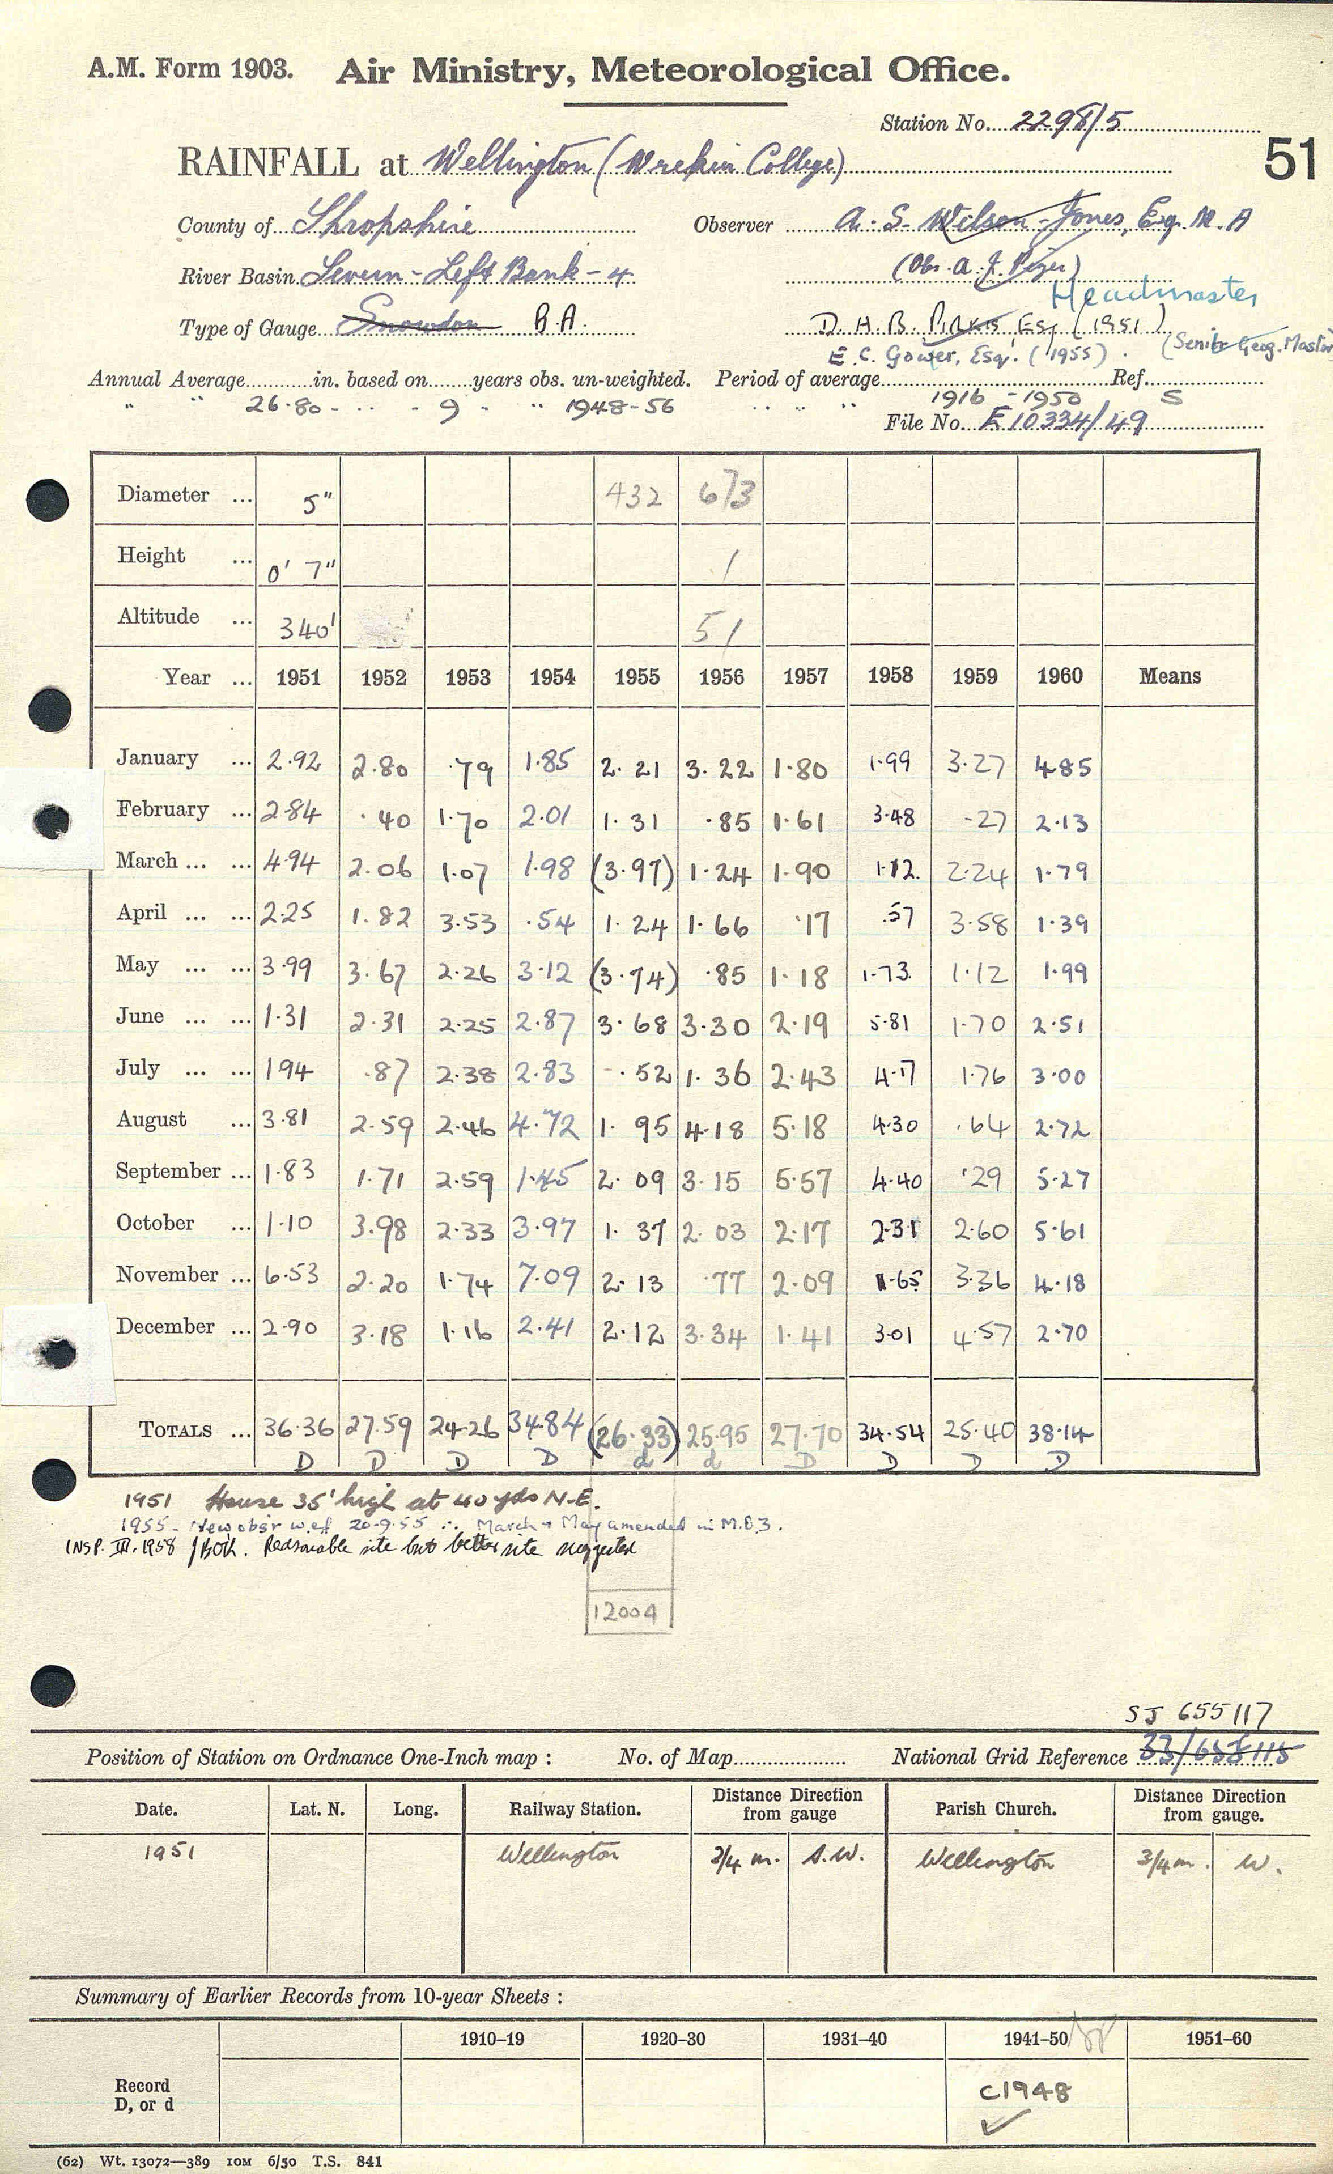 A.M. Form 1903. Air Ministry, Meteorological Office.
Station No. 2298/5
51
RAINFALL at Wellington (Wrekin College)
County of Shropshire Observer A. S. Wilson-Jones, Esq. M.A
River Basin Severn - Left Bank - 4 (Obs. A. J.
Headmaster
Type of Gauge Snowdon B.A. D. H. B. Pirkis Esq (1951)
E. C. Gower, Esq. (1955). (Senior Geog. Master
Annual Average in. based on years obs. un-weighted. Period of average Ref.
" " 26.80 - " - 9 " " 1948-56 " " " 1916 - 1950 S
File No. E 10334/49
Diameter ... 5" 432 673
Height ... 0' 7" 1
Altitude ... 340' 51
Year ... 1951 1952 1953 1954 1955 1956 1957 1958 1959 1960 Means
January ... 2.92 2.80 .79 1.85 2.21 3.22 1.80 1.99 3.27 4.85
February ... 2.84 .40 1.70 2.01 1.31 .85 1.61 3.48 .27 2.13
March ... ... 4.94 2.06 1.07 1.98 (3.97) 1.24 1.90 1.12 2.24 1.79
April ... ... 2.25 1.82 3.53 .54 1.24 1.66 .17 .57 3.58 1.39
May ... ... 3.99 3.67 2.26 3.12 (3.74) .85 1.18 1.73 1.12 1.99
June ... ... 1.31 2.31 2.25 2.87 3.68 3.30 2.19 5.81 1.70 2.51
July ... ... 1.94 .87 2.38 2.83 .52 1.36 2.43 4.17 1.76 3.00
August ... 3.81 2.59 2.46 4.72 1.95 4.18 5.18 4.30 .64 2.72
September ... 1.83 1.71 2.59 1.45 2.09 3.15 5.57 4.40 .29 5.27
October ... 1.10 3.98 2.33 3.97 1.37 2.03 2.17 2.31 2.60 5.61
November ... 6.53 2.20 1.74 7.09 2.13 .77 2.09 1.65 3.36 4.18
December ... 2.90 3.18 1.16 2.41 2.12 3.34 1.41 3.01 4.57 2.70
TOTALS ... 36.36 27.59 24.26 34.84 (26.33) 25.95 27.70 34.54 25.40 38.14
D D D D d d D D D D
1951 House 35' high at 40 yds N.E.
1955 - New obsr w.e.f 20.9.55 ∴ March + May amended in M.O.3.
INSP. III. 1958 Reasonable site but better site suggested
12004
SJ 655117
Position of Station on Ordnance One-Inch map : No. of Map National Grid Reference 33/655115
Date. Lat. N. Long. Railway Station. Distance from gauge Direction Parish Church. Distance from gauge. Direction
1951 Wellington 3/4 m. S.W. Wellington 3/4 m. W.
Summary of Earlier Records from 10-year Sheets :
1910–19 1920–30 1931–40 1941–50 1951–60
Record D, or d C1948
(62) Wt. 13072—389 10M 6/50 T.S. 841